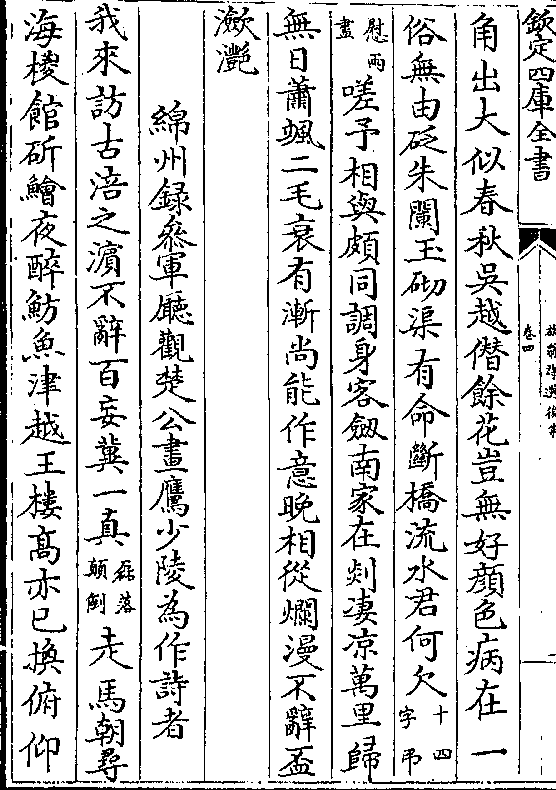 欽定四庫全書
卷四
角出大似春秋吳越僭餘花豈無好顏色病在一
俗無由砭朱闌玉砌渠有命斷橋流水君何欠十四字弔
慰兩盡嗟予相與頗同調身客劔南家在剡凄凉萬里歸
無日蕭颯二毛衰有漸尚能作意晚相從爛漫不辭盃
瀲灧
綿州録叅軍廳觀楚公畫鷹少陵為作詩者
我來訪古涪之濵不辭百妄冀一真磊落顛倒走馬朝尋
海椶館斫鱠夜醉魴魚津越王樓髙亦已換俯仰